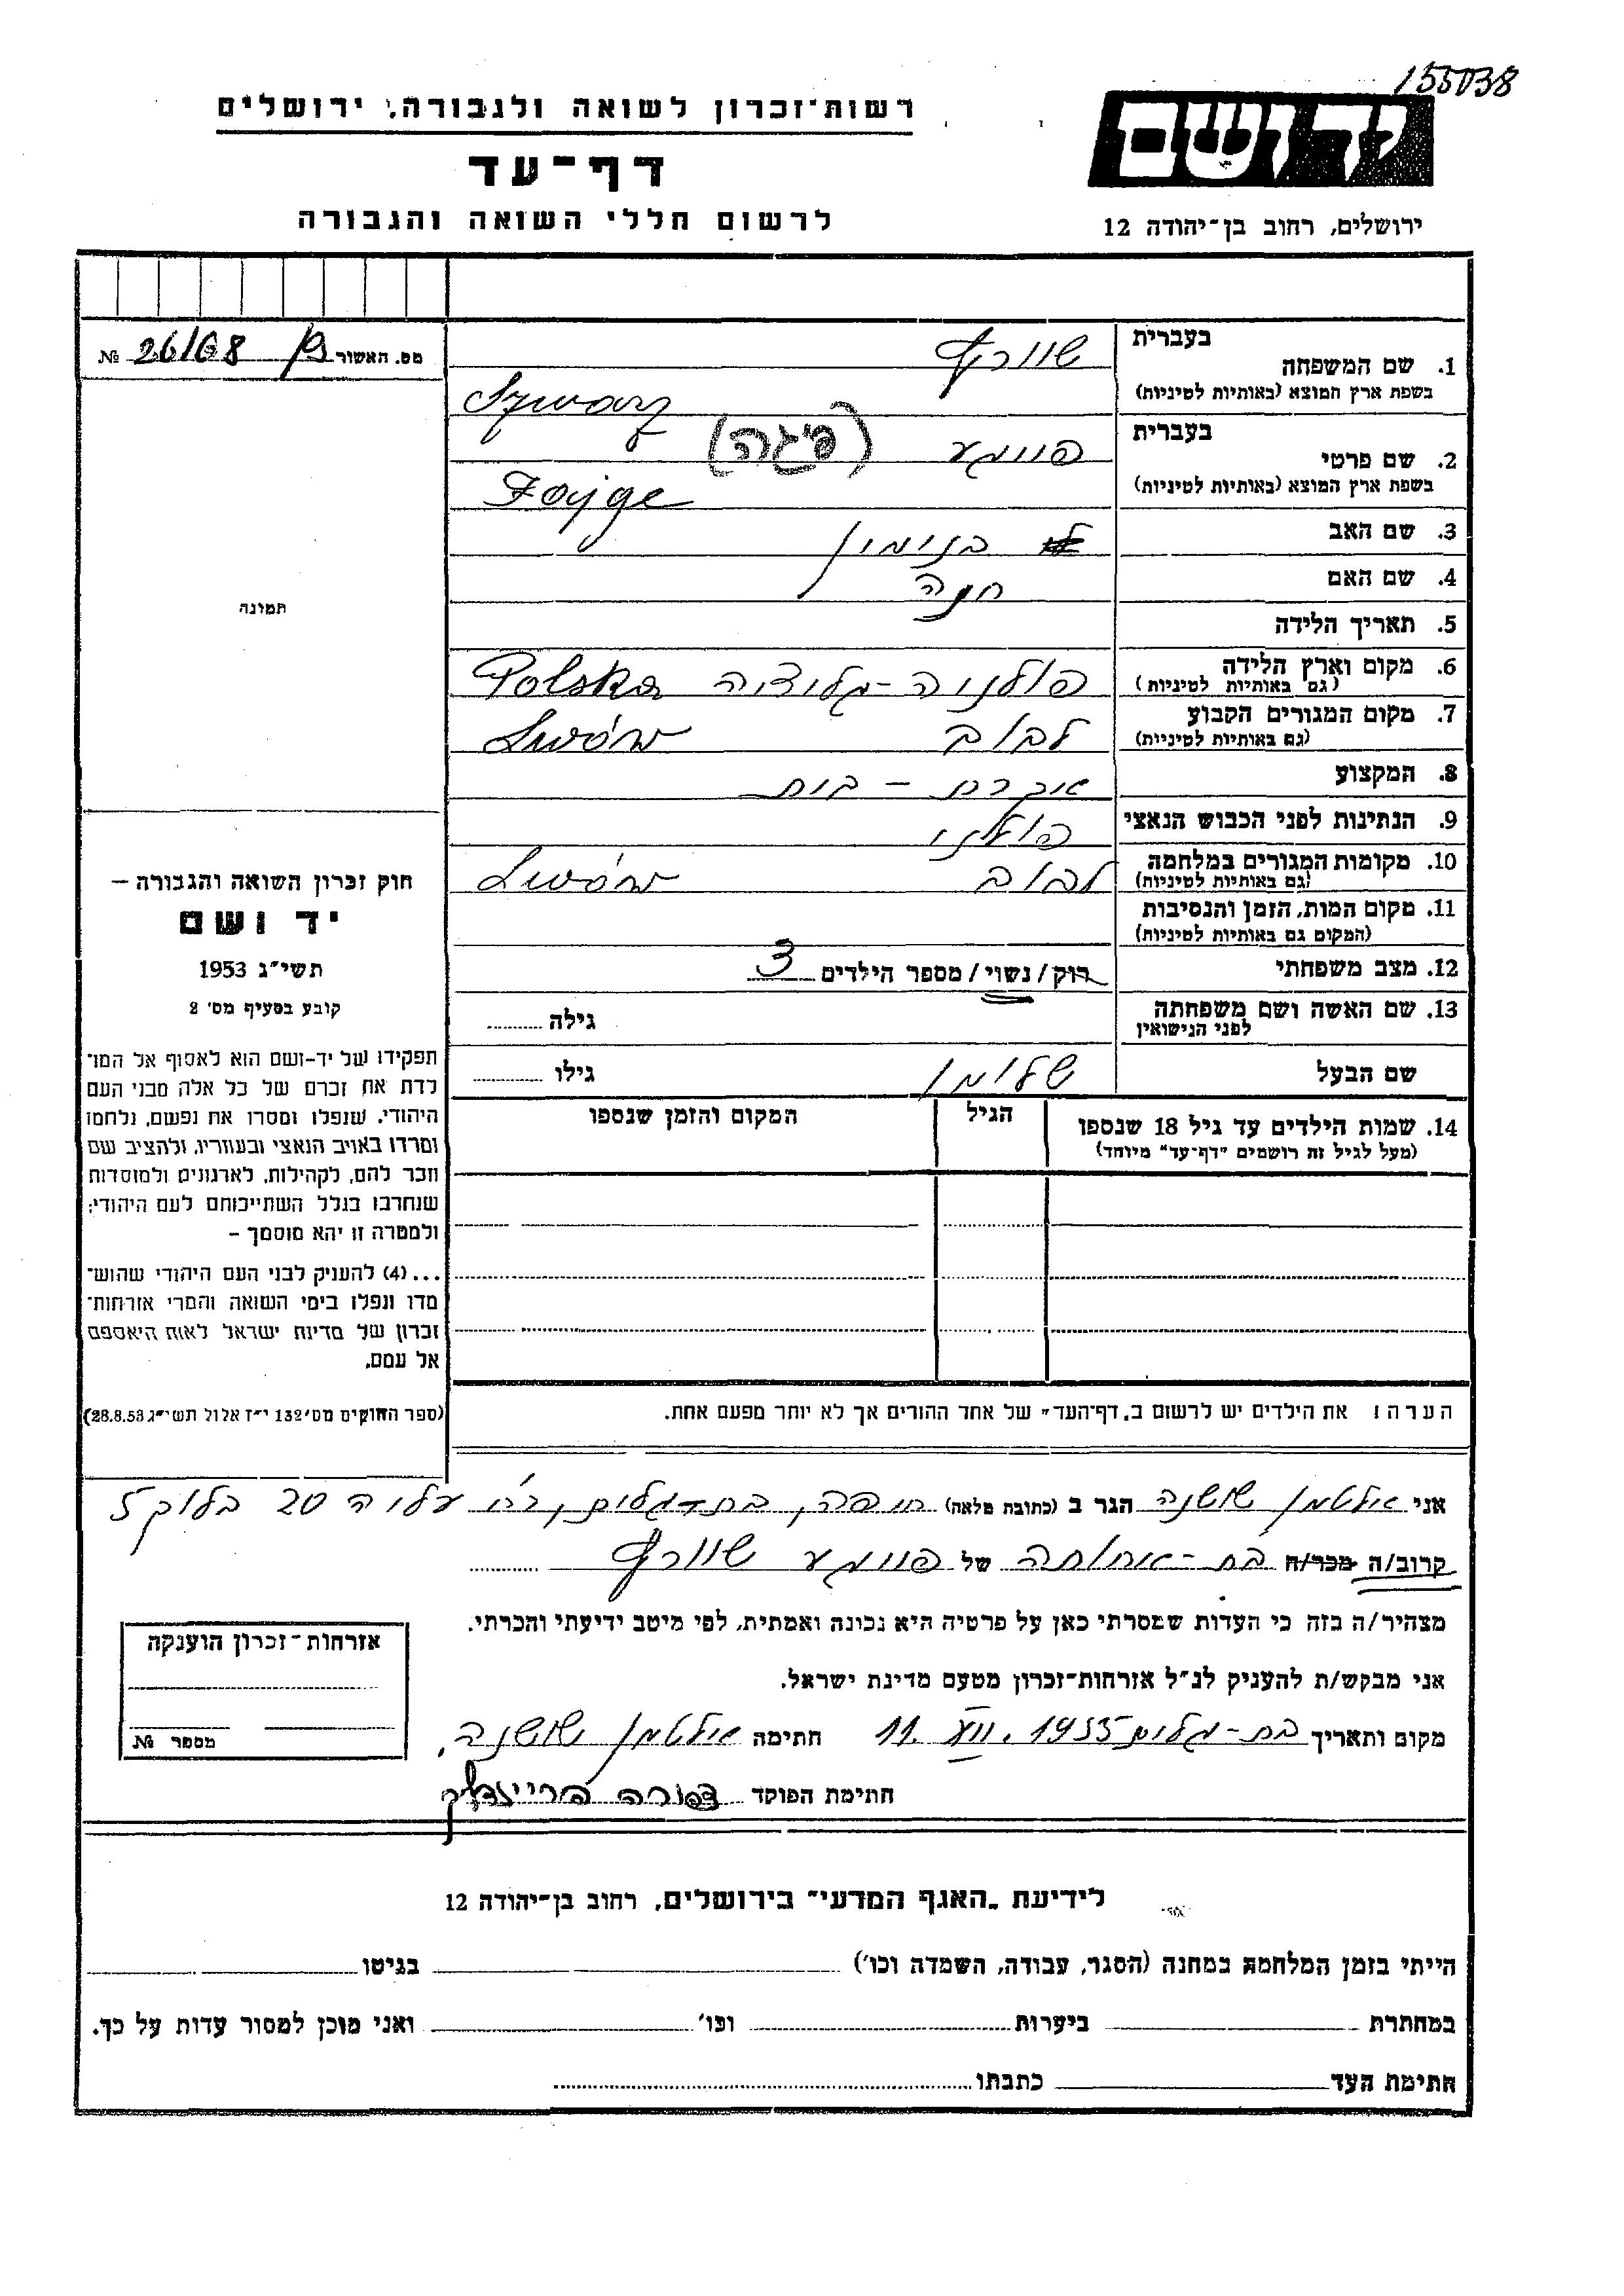 155038
רשות־זכרון לשואה ולגבורה, ירושלים
יד ושם
דף־עד
לרשום חללי השואה והגבורה
ירושלים, רחוב בן־יהודה 12
מס. האשור
№ 26108
בעברית
1. שם המשפחה שוורץ
בשפת ארץ המוצא (באותיות לטיניות) Szwarz
בעברית
2. שם פרטי פייגע (פיגה)
בשפת ארץ המוצא (באותיות לטיניות) Fajge
3. שם האב בנימין
4. שם האם חנה
5. תאריך הלידה
6. מקום וארץ הלידה פולניה - גליציה Polska
(גם באותיות לטיניות)
7. מקום המגורים הקבוע לבוב Lwów
(גם באותיות לטיניות)
8. המקצוע עקרת - בית
9. הנתינות לפני הכבוש הנאצי פולני
10. מקומות המגורים במלחמה לבוב Lwów
(גם באותיות לטיניות)
11. מקום המות, הזמן והנסיבות
(המקום גם באותיות לטיניות)
12. מצב משפחתי רוק/נשוי/מספר הילדים 3
13. שם האשה ושם משפחתה גילה
לפני הנישואין
שם הבעל שלומו גילו
14. שמות הילדים עד גיל 18 שנספו הגיל המקום והזמן שנספו
(מעל לגיל זה רושמים "דף־עד" מיוחד)
תמונה
חוק זכרון השואה והגבורה –
יד ושם
תשי"ג 1953
קובע בסעיף מס' 2
תפקידו של יד-ושם הוא לאסוף אל המו־
לדת את זכרם של כל אלה מבני העם
היהודי, שנפלו ומסרו את נפשם, נלחמו
ומרדו באויב הנאצי ובעוזריו, ולהציב שם
וזכר להם, לקהילות, לארגונים ולמוסדות
שנחרבו בגלל השתייכותם לעם היהודי;
ולמטרה זו יהא מוסמך –
...(4) להעניק לבני העם היהודי שהוש־
מדו ונפלו בימי השואה והמרי אזרחות־
זכרון של מדינת ישראל לאות היאספם
אל עמם.
(ספר החוקים מס' 132 י"ז אלול תשי"ג 28.8.53)
הערה: את הילדים יש לרשום ב"דף־העד" של אחד ההורים אך לא יותר מפעם אחת.
אני אלטמן שושנה הגר ב (כתובת מלאה) חיפה, בת-גלים, רח' עליה 20 בלוק 5
קרוב/ה מכר/ה בת-אחותה של פייגע שוורץ
מצהיר/ה בזה כי העדות שמסרתי כאן על פרטיה היא נכונה ואמתית, לפי מיטב ידיעתי והכרתי.
אני מבקש/ת להעניק לנ"ל אזרחות־זכרון מטעם מדינת ישראל.
מקום ותאריך בת-גלים 11. VII. 1955 חתימה אלטמן שושנה
חתימת הפוקד
אזרחות־זכרון הוענקה
מספר №
לידיעת "האגף המדעי" בירושלים, רחוב בן־יהודה 12
הייתי בזמן המלחמה במחנה (הסגר, עבודה, השמדה וכו') בגיטו
במחתרת ביערות וכו' ואני מוכן למסור עדות על כך.
חתימת העד כתבתו